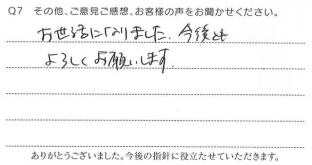 Q7 その他、ご意見ご感想、お客様の声をお聞かせください。
お世話になりました。今後とも
よろしくお願いします。
ありがとうございました。今後の指針に役立たせていただきます。